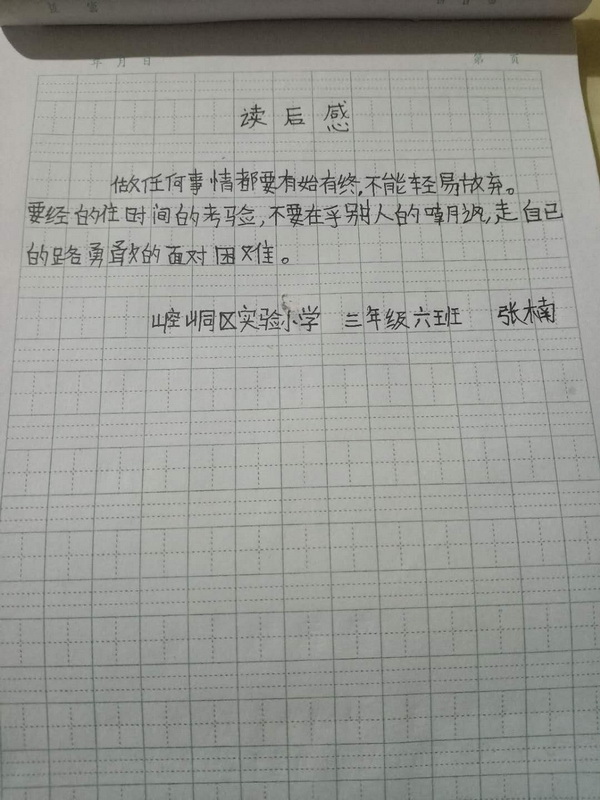 年 月 日 第 页
读后感
做任何事情都要有始有终,不能轻易放弃。
要经的住时间的考验,不要在乎别人的嘲讽,走自己
的路勇敢的面对困难。
崆峒区实验小学 三年级六班 张楠